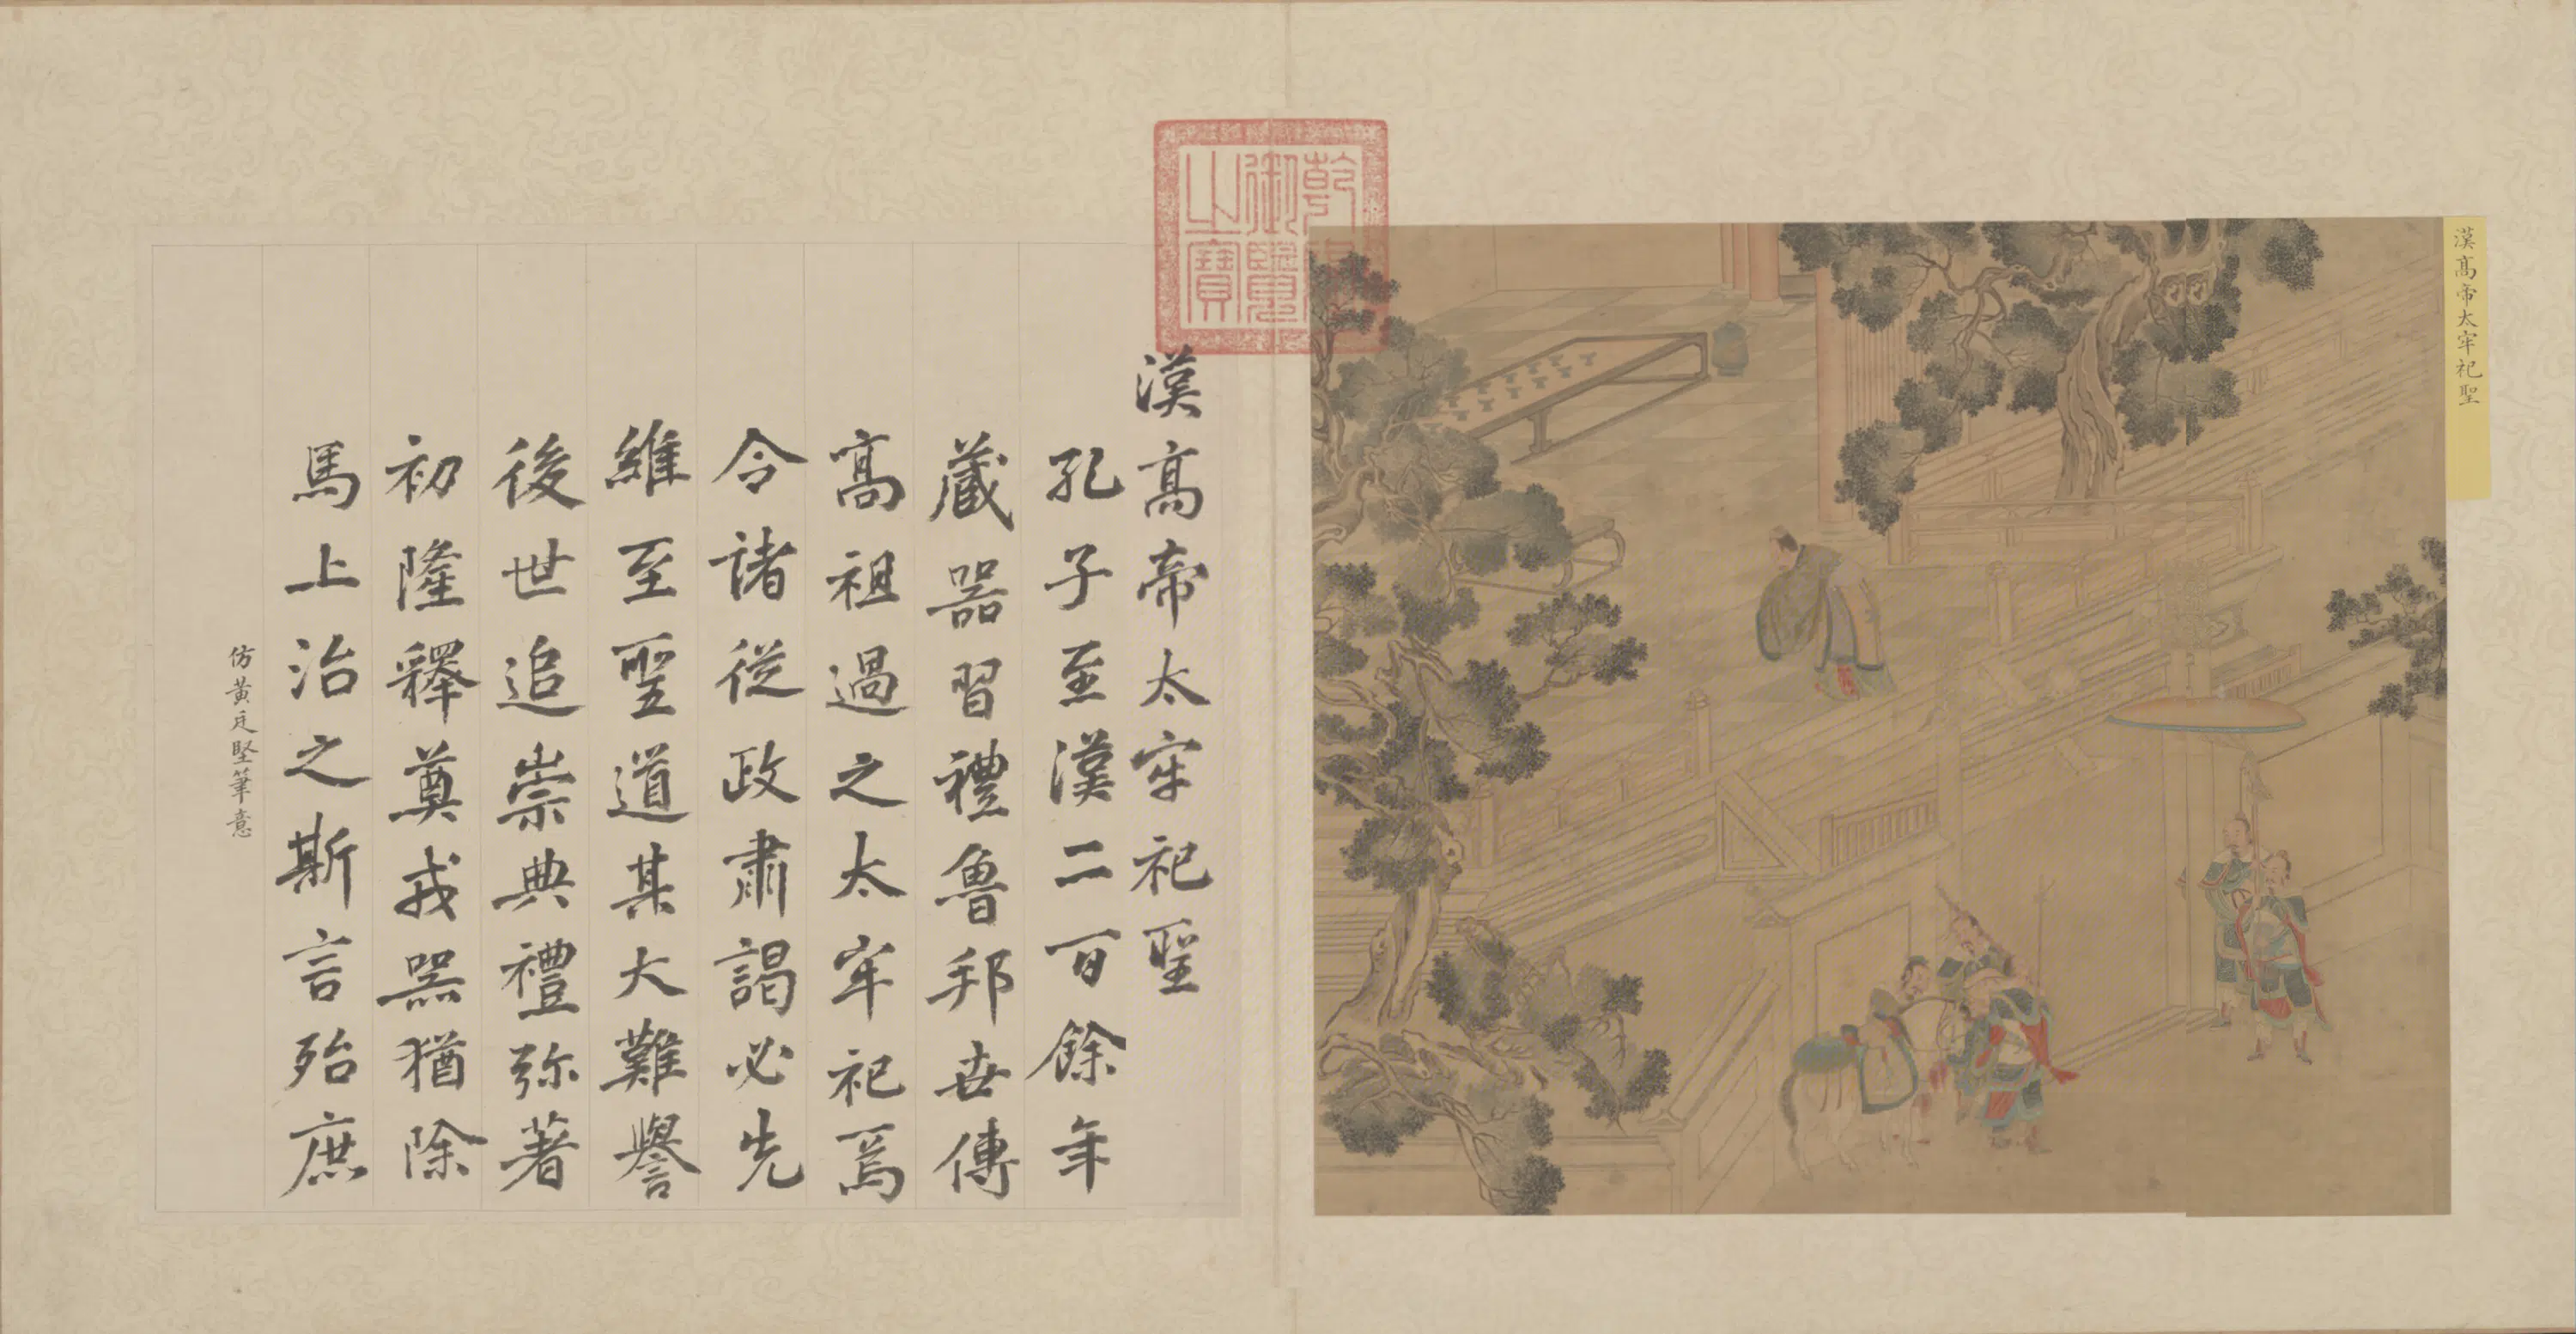 漢高帝太牢祀聖
乾隆御覽之寶
漢高帝太牢祀聖
孔子至漢二百餘年
藏器習禮魯邦世傳
高祖過之太牢祀焉
令諸從政肅謁必先
維至聖道某大難譽
後世追崇典禮弥著
初隆釋奠戎器猶除
馬上治之斯言殆庶
仿黃庭堅筆意